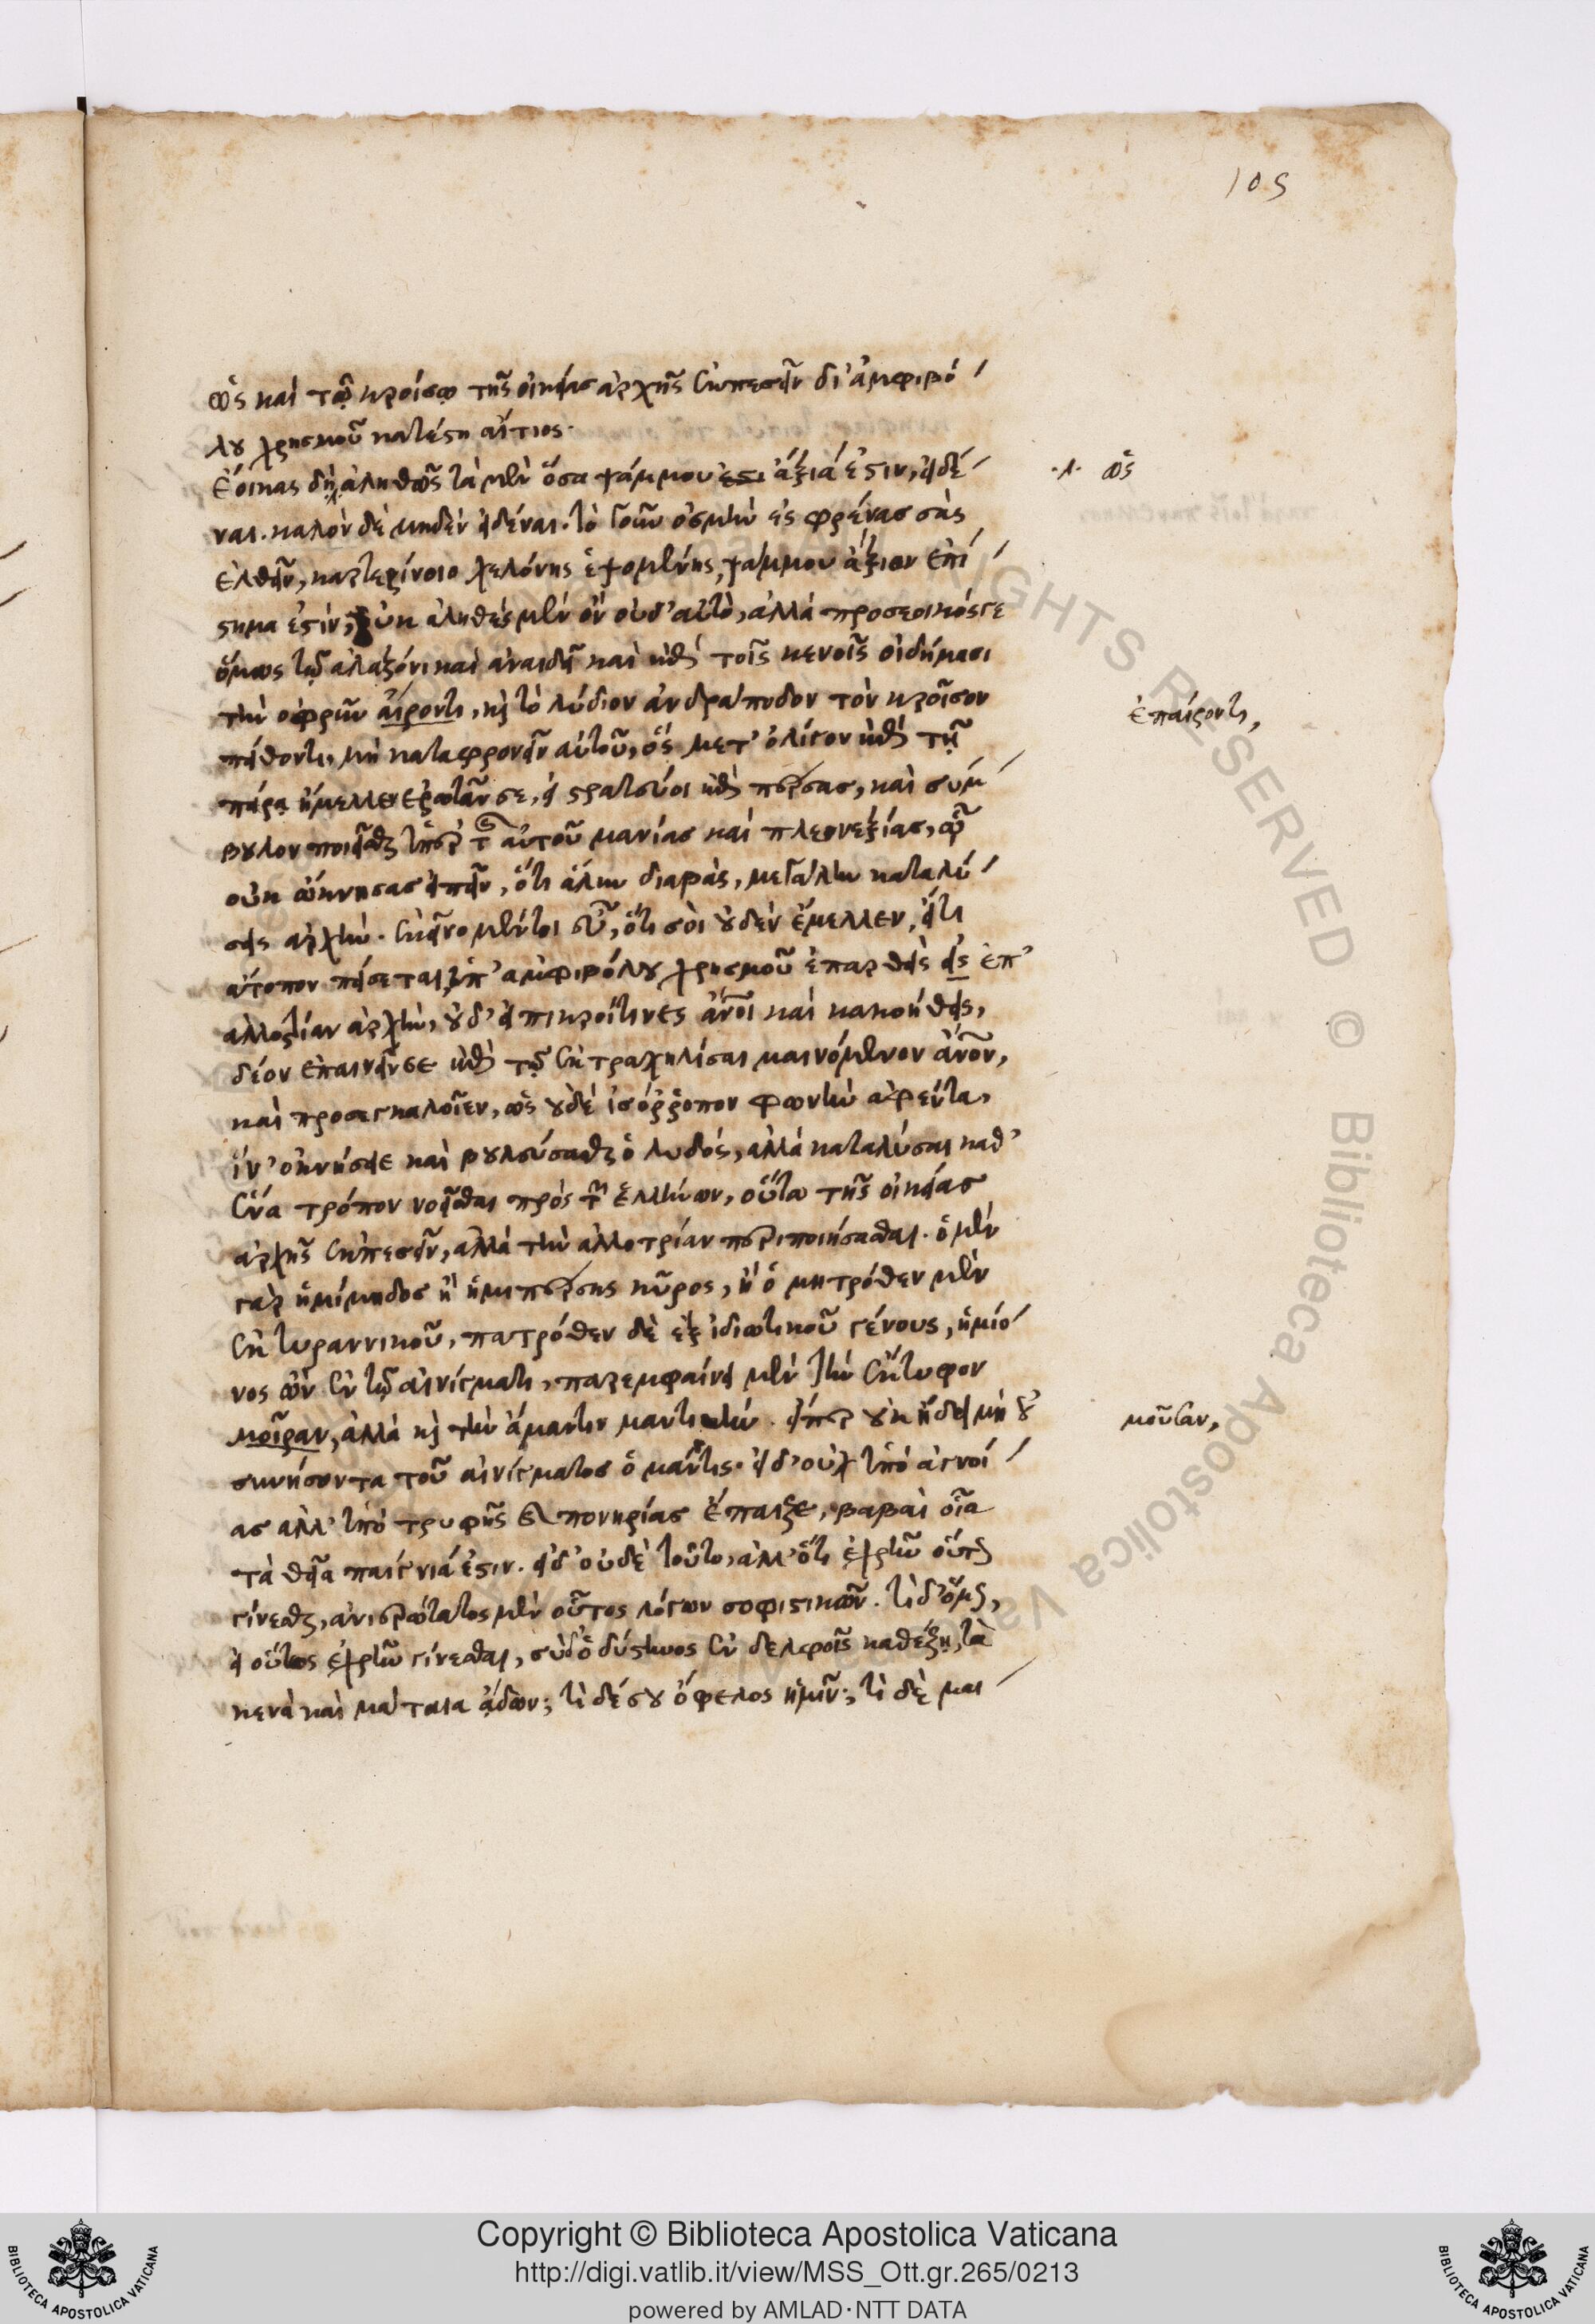 105
ὡς καὶ τῷ κροίσῳ τῆς οἰκείας ἀρχῆς ἐκπεσεῖν δι' ἀμφιβό
λου χρησμοῦ κατέστη αἴτιος.
Ἔοικας δὴ ἀληθῶς τὰ μὲν ὅσα ψάμμου ἐστι ἄξιά ἐστιν, εἰδέ
.λ. ὡς
ναι. καλὸν δὲ μηδὲν εἰδέναι. τὸ γοῦν ὀσμὴν ἐς φρένας σὰς
ἐλθεῖν, καρτερίνοιο χελώνης ἑψομένης, ψάμμου ἄξιον ἐπί
στημα ἐστίν, οὐκ ἀληθὲς μὲν ὂν οὐδ' αὐτὸ, ἀλλὰ προσεοικός γε
ὅμως τῷ ἀλαζόνι καὶ ἀναιδεῖ καὶ ἐπὶ τοῖς κενοῖς οἰδήμασι
τὴν ὀφρῦν αἴροντι, καὶ τὸ λύδιον ἀνδράποδον τὸν κροῖσον
ἐπαίροντι,
πείθοντι, μὴ καταφρονεῖν αὐτοῦ, ὃς μετ' ὀλίγον ἐπὶ τῇ
πείρᾳ ἤμελλεν ἐρωτᾶν σε, εἰ στρατεύοι ἐπὶ πέρσας, καὶ σύμ
βουλον ποιεῖσθαι ὑπὲρ τῆς αὐτοῦ μανίας καὶ πλεονεξίας, ᾧ
οὐκ ὤκνησας εἰπεῖν, ὅτι ἅλυν διαβὰς, μεγάλην καταλύ
σεις ἀρχήν. ἐκεῖνο μέντοι εὖ, ὅτι σοὶ οὐδὲν ἔμελλεν, εἴ τι
ἄτοπον πείσεται ὑπ' ἀμφιβόλου χρησμοῦ ἐπαρθεὶς εἰς ἐπ'
ἀλλοτρίαν ἀρχὴν, οὐδ' εἰ πικροί τινες ἄνοι καὶ κακοήθεις,
δέον ἐπαινεῖν σε ἐπὶ τῷ ἐκτραχηλίσαι μαινόμενον ἄνον,
καὶ προσεγκαλοῖεν, ὡς οὐδὲ ἰσόρροπον φωνὴν ἀφέντα,
ἵν' ὀκνήσῃ καὶ βουλεύσαιτο ὁ λυδός, ἀλλὰ καταλύσαι καθ'
ἕνα τρόπον νοεῖσθαι πρὸς τῶν ἑλλήνων, οὕτω τῆς οἰκείας
ἀρχῆς ἐκπεσεῖν, ἀλλὰ τὴν ἀλλοτρίαν περιποιήσασθαι. ὁ μὲν
γὰρ ἡμίμηδος ἢ ἡμιπέρσης κῦρος, ἢ ὁ μητρόθεν μὲν
ἐκ τυραννικοῦ, πατρόθεν δὲ ἐξ ἰδιωτικοῦ γένους, ἡμίο
νος ὢν ἐν τῷ αἰνίγματι, παρεμφαίνει μὲν τὴν ἔκτυφον
μοῖραν, ἀλλὰ καὶ τὴν ἄμαντιν μαντικήν. εἴπερ οὐκ ᾔδει μὴ οὐ
μοῦσαν,
συνήσοντα τοῦ αἰνίγματος ὁ μάντις. εἰ δ' οὐχ ὑπὸ ἀγνοί
ας ἀλλ' ὑπὸ τρυφῆς καὶ πονηρίας ἔπαιξε, βαβαὶ οἷα
τὰ θεῖα παίγνιά ἐστιν. εἰ δ' οὐδὲ τοῦτο, ἀλλ' ὅτι ἐχρῆν οὕτω
γίνεσθαι, ἀνιερώτατος μὲν οὗτος λόγων σοφιστικῶν. τί δ' ὅμως,
εἰ οὕτως ἐχρῆν γίνεσθαι, σὺ δ' ὁ δύστηνος ἐν δελφοῖς καθέζῃ, τὰ
κενὰ καὶ μάταια ᾄδων; τί δέ σου ὄφελος ἡμῖν; τί δὲ μαι
Copyright © Biblioteca Apostolica Vaticana
http://digi.vatlib.it/view/MSS_Ott.gr.265/0213
powered by AMLAD·NTT DATA
BIBLIOTECA APOSTOLICA VATICANA
BIBLIOTECA APOSTOLICA VATICANA